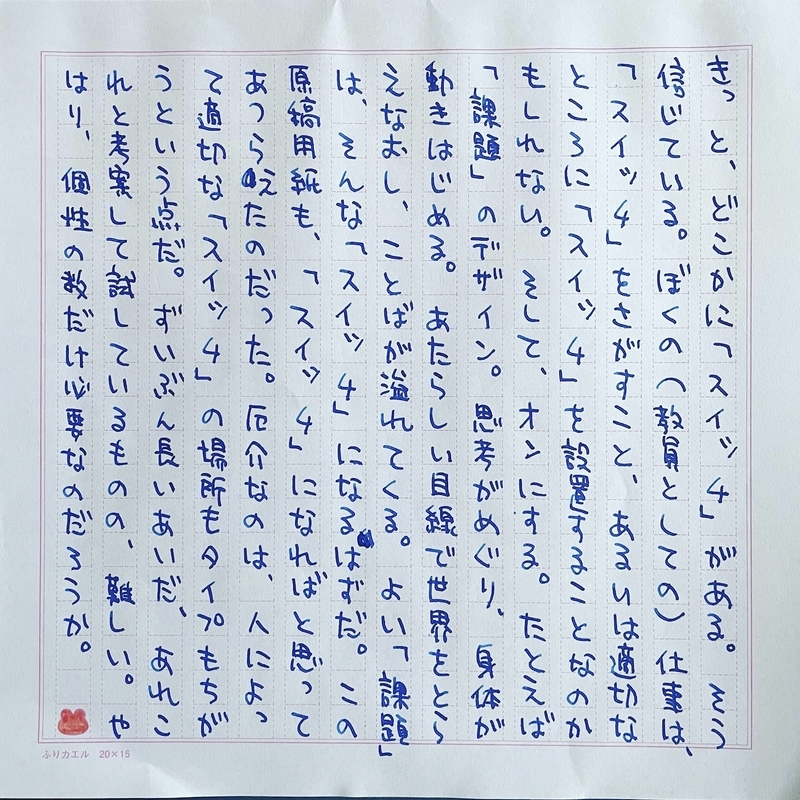 きっと、どこかに「スイッ4」がある。そう
信じている。ぼくの(教員としての)仕事は、
「スイッ4」をさがすこと、あるいは適切な
ところに「スイッ4」を設置することなのか
もしれない。そして、オンにする。たとえば
「課題」のデザイン。思考がめぐり、身体が
動きはじめる。あたらしい目線で世界をとら
えなおし、ことばが溢れてくる。よい「課題」
は、そんな「スイッ4」になるはずだ。この
原稿用紙も、「スイッ4」になればと思って
あつらえたのだった。厄介なのは、人によっ
て適切な「スイッ4」の場所もタイプもちが
うという点だ。ずいぶん長いあいだ、あれこ
れと考案して試しているものの、難しい。や
はり、個性の数だけ必要なのだろうか。
ふりカエル 20×15